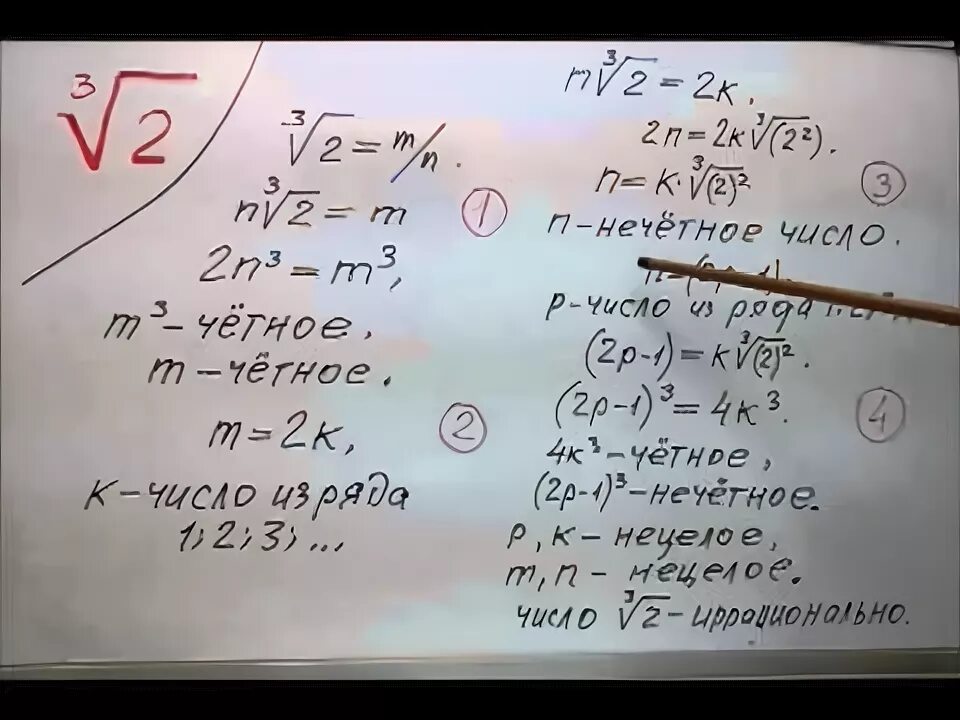 ∛2
∛2 = m/n.
n∛2 = m
①
2n³ = m³,
m³ – чётное,
m – чётное.
m = 2к,
②
к – число из ряда
1; 2; 3; ...
m∛2 = 2к,
2n = 2к∛(2²).
n = к·∛(2)²
③
n – нечётное число.
р – число из ряда
(2р-1) = к∛(2)².
(2р-1)³ = 4к³.
④
4к³ – чётное,
(2р-1)³ – нечётное.
р, к – нецелое,
m, n – нецелое.
число ∛2 – иррационально.